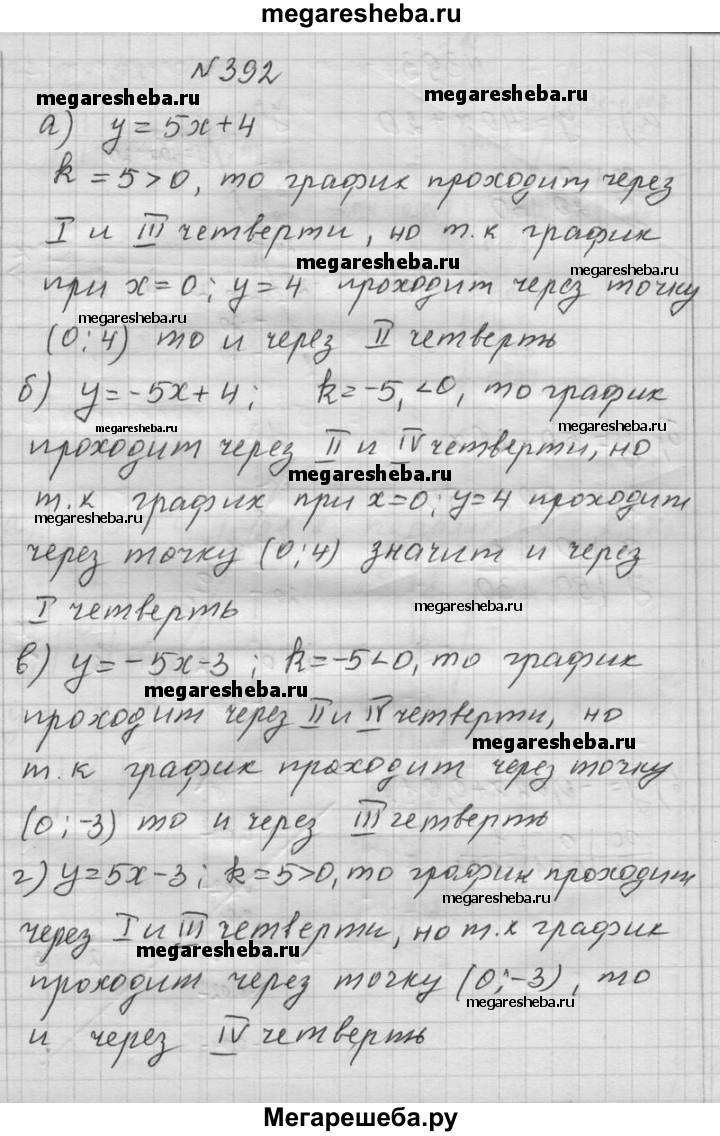 megaresheba.ru
№392
megaresheba.ru megaresheba.ru
а) y = 5x+4
k = 5>0, то график проходит через
I и III четверти, но т.к график
megaresheba.ru megaresheba.ru
при x=0; y=4 проходит через точку
megaresheba.ru
(0;4) то и через II четверть
б) y=-5x+4; k=-5,<0, то график
megaresheba.ru megaresheba.ru
проходит через II и IV четверти, но
megaresheba.ru
т.к график при x=0; y=4 проходит
megaresheba.ru
через точку (0;4) значит и через
I четверть
megaresheba.ru
в) y=-5x-3; k=-5<0, то график
megaresheba.ru
проходит через II и IV четверти, но
megaresheba.ru
т.к график проходит через точку
(0;-3) то и через III четверть
г) y=5x-3; k=5>0, то график проходит
megaresheba.ru
через I и III четверти, но т.к график
megaresheba.ru
проходит через точку (0;-3), то
megaresheba.ru
и через IV четверть
Мегарешеба.ру